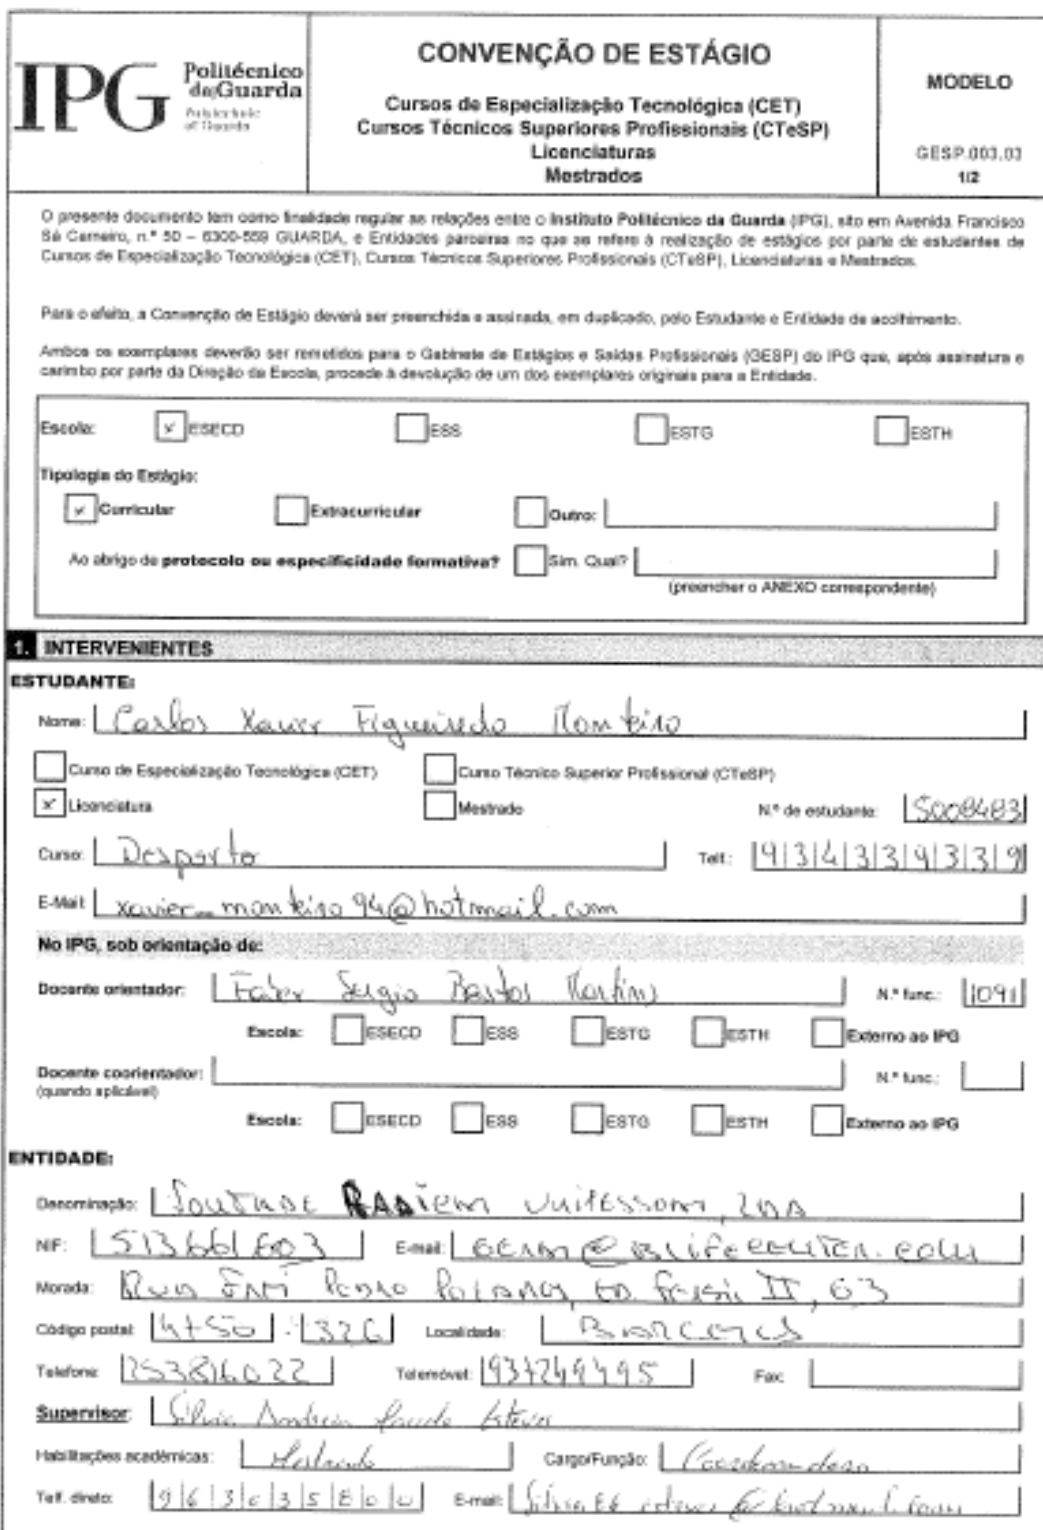 IPG Politécnico da Guarda
Polytechnic of Guarda
CONVENÇÃO DE ESTÁGIO
Cursos de Especialização Tecnológica (CET)
Cursos Técnicos Superiores Profissionais (CTeSP)
Licenciaturas
Mestrados
MODELO
GESP.003.03
1/2
O presente documento tem como finalidade regular as relações entre o Instituto Politécnico da Guarda (IPG), sito em Avenida Francisco
Sá Carneiro, n.º 50 – 6300-559 GUARDA, e Entidades parceiras no que se refere à realização de estágios por parte de estudantes de
Cursos de Especialização Tecnológica (CET), Cursos Técnicos Superiores Profissionais (CTeSP), Licenciaturas e Mestrados.
Para o efeito, a Convenção de Estágio deverá ser preenchida e assinada, em duplicado, pelo Estudante e Entidade de acolhimento.
Ambos os exemplares deverão ser remetidos para o Gabinete de Estágios e Saídas Profissionais (GESP) do IPG que, após assinatura e
carimbo por parte da Direção da Escola, procede à devolução de um dos exemplares originais para a Entidade.
Escola: x ESECD ESS ESTG ESTH
Tipologia do Estágio:
x Curricular Extracurricular Outro:
Ao abrigo de protocolo ou especificidade formativa? Sim. Qual?
(preencher o ANEXO correspondente)
1. INTERVENIENTES
ESTUDANTE:
Nome: Carlos Xavier Figueiredo Monteiro
Curso de Especialização Tecnológica (CET) Curso Técnico Superior Profissional (CTeSP)
x Licenciatura Mestrado N.º de estudante: 5008483
Curso: Desporto Telf.: 934339339
E-Mail: xavier_monteiro94@hotmail.com
No IPG, sob orientação de:
Docente orientador: Sergio Bastos Martins N.º func.: 1091
Escola: ESECD ESS ESTG ESTH Externo ao IPG
Docente coorientador: N.º func.:
(quando aplicável)
Escola: ESECD ESS ESTG ESTH Externo ao IPG
ENTIDADE:
Denominação: Unipessoal, LDA
NIF: 513661603 E-mail:
Morada: Rua Frei Pedro II, 63
Código postal: 4750 - 326 Localidade: Barcelos
Telefone: 253816022 Telemóvel: 937249495 Fax:
Supervisor: Silvia Andreia Esteves
Habilitações académicas: Mestrado Cargo/Função: Coordenadora
Telf. direto: 963035800 E-mail: